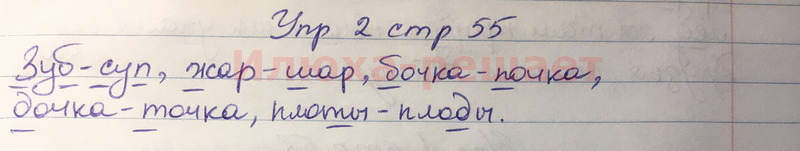 Упр 2 стр 55
Илюха-решает
Зуб-суп, жар-шар, бочка-почка,
дочка-точка, плоты-плоды.